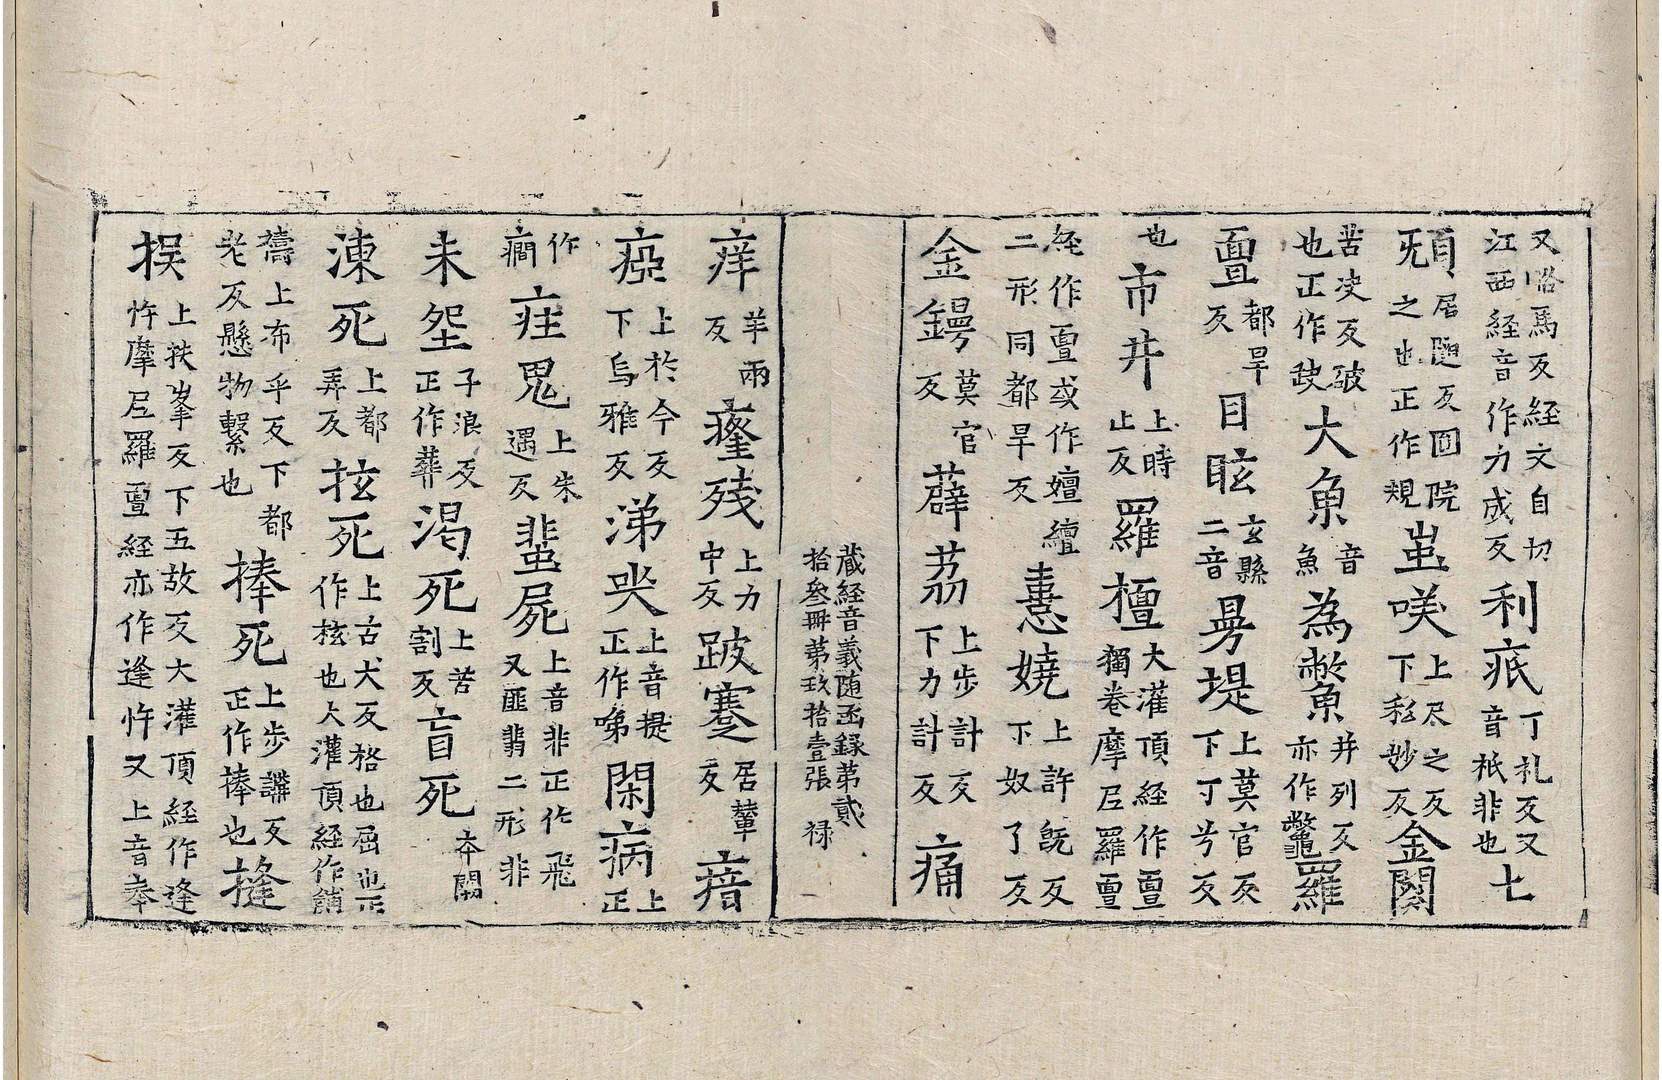 又咯馬反経文自切江西経音作力成反利疧丁礼反又音祇非也七
㒵居隨反囬院旡之也正作規蚩咲上尺之反下私妙反金闋
苦决反破也正作䦼大魚音魚為鱉并列反亦作鼈羅
亶都旱反目眩玄縣二音㝵堤上莫官反下丁兮反
也市井上時止反羅檀大灌頂経作亶獨卷摩尼羅亶
経作亶或作嬗繵二形同都旱反恚嬈上許旣反下奴了反
金鍔莫官反薜荔上步計反下力計反痛
蔵経音義随函録第貳拾叄冊第玖拾壹張 禄
痒羊兩反癃残上力中反跛蹇居輦反瘖
瘂上於今反下烏雅反涕哭上音提正作啼閑病上正
作癎疰鬼上朱遇反蜚屍上音非正作飛又匪翡二形非
未垩子浪反正作葬渴死上苦割反盲死夲闕
涷死上都弄反㧋死上古犬反格也屈也正作㭹也大灌頂経作餶
禱上布乎反下都老反懸物繫也棒死上步講反正作棒也摓
捑上扶峯反下五故反大灌頂経作逢忤摩尼羅亶経亦作逢忤又上音奉